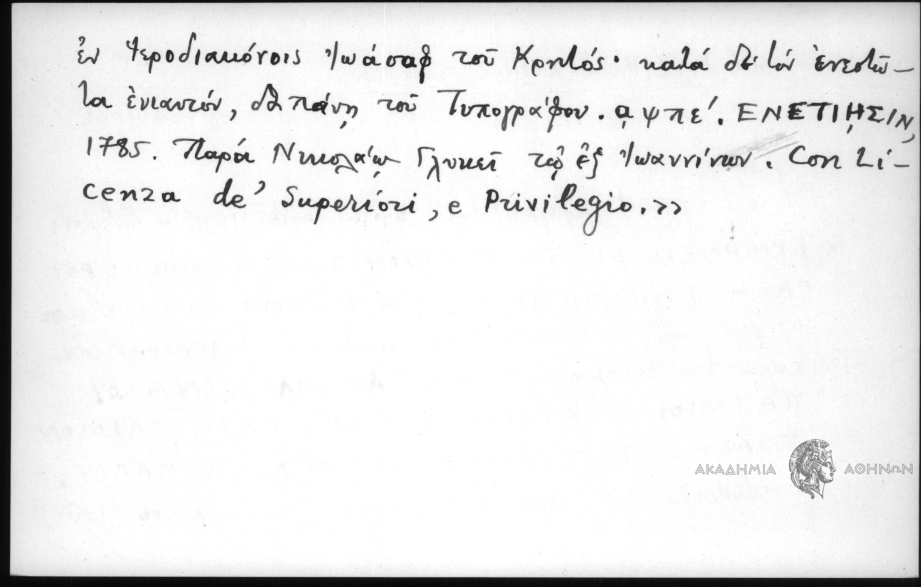 ἐν Ἱεροδιακόνοις Ἰωάσαφ τοῦ Κρητός· κατά δέ τόν ἐνεστῶ-
τα ἐνιαυτόν, δαπάνῃ τοῦ Τυπογράφου. αψπε΄. ΕΝΕΤΙΗΣΙΝ,
1785. Παρά Νικολάῳ Γλυκεῖ τῷ ἐξ Ἰωαννίνων. Con Li-
cenza de' Superiori, e Privilegio.>>
ΑΚΑΔΗΜΙΑ ΑΘΗΝΩΝ